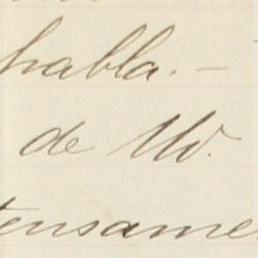 habla. —
de W.
tensame